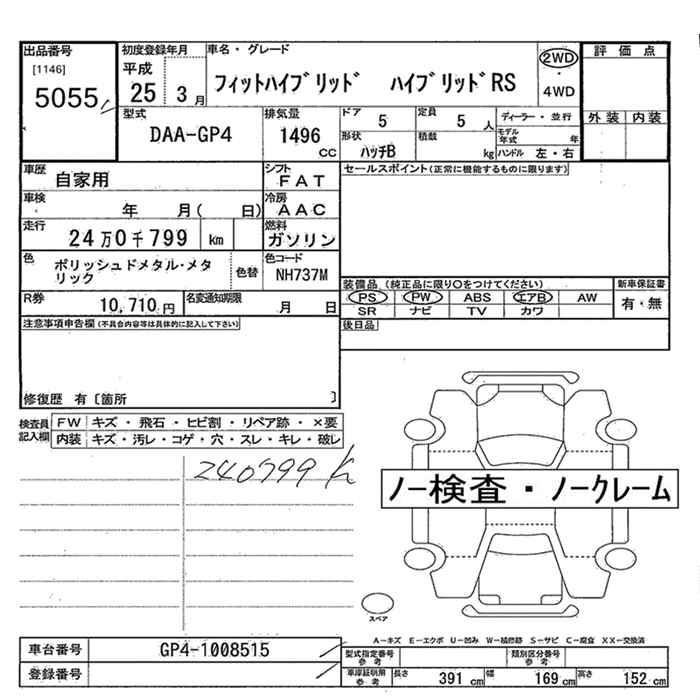 出品番号
[1146]
5055
初度登録年月
平成
25 3 月
車名・グレード
フィットハイブリッド ハイブリッドRS
2WD
・
4WD
評価点
外装 内装
型式
DAA-GP4
排気量
1496
CC
ドア
5
定員
5 人
形状
ハッチB
積載
kg
ディーラー・並行
モデル年式
年
ハンドル 左・右
車歴
自家用
シフト
F A T
車検
年 月( 日)
冷房
A A C
走行
24 万 0 千 799 km
燃料
ガソリン
色
ポリッシュドメタル・メタリック
色替
色コード
NH737M
R券
10,710 円
名変通知期限
月 日
セールスポイント(正常に機能するものに限ります)
装備品(純正品に限り○をつけてください)
PS PW ABS エアB AW
SR ナビ TV カワ
新車保証書
有・無
後日品
注意事項申告欄(不具合内容等は具体的に記入して下さい)
修復歴 有〔箇所 〕
検査員記入欄
FW キズ・飛石・ヒビ割・リペア跡・×要
内装 キズ・汚レ・コゲ・穴・スレ・キレ・破レ
240799 k
ノー検査・ノークレーム
スペア
A－キズ E－エクボ U－凹み W－補修跡 S－サビ C－腐食 XX－交換済
車台番号
GP4-1008515
登録番号
型式指定番号
参考
類別区分番号
参考
車庫証明用
参考
長さ 391 cm 幅 169 cm 高さ 152 cm